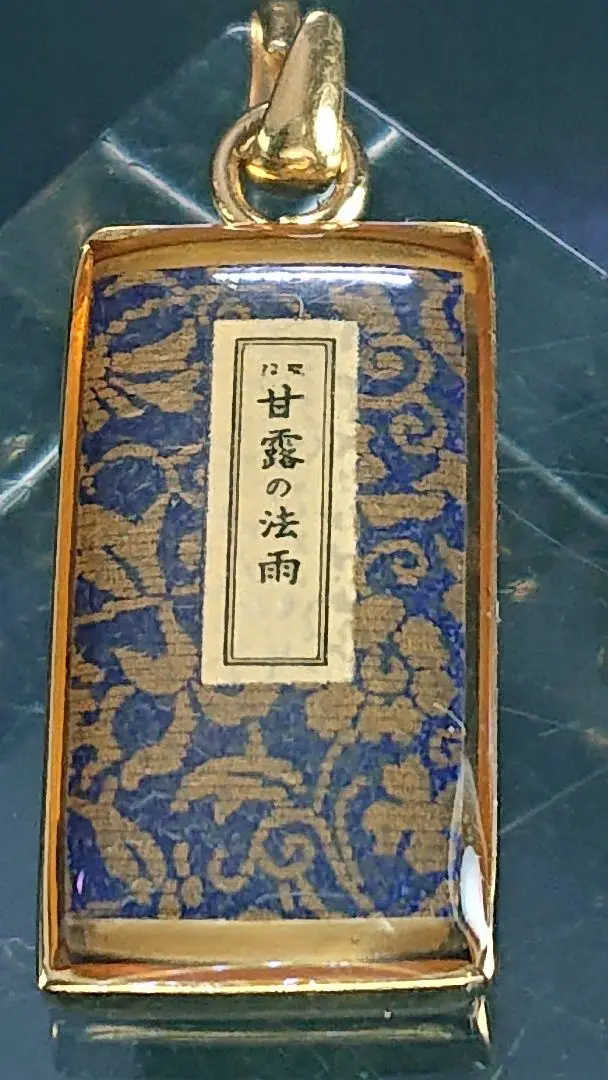 甘露の法雨